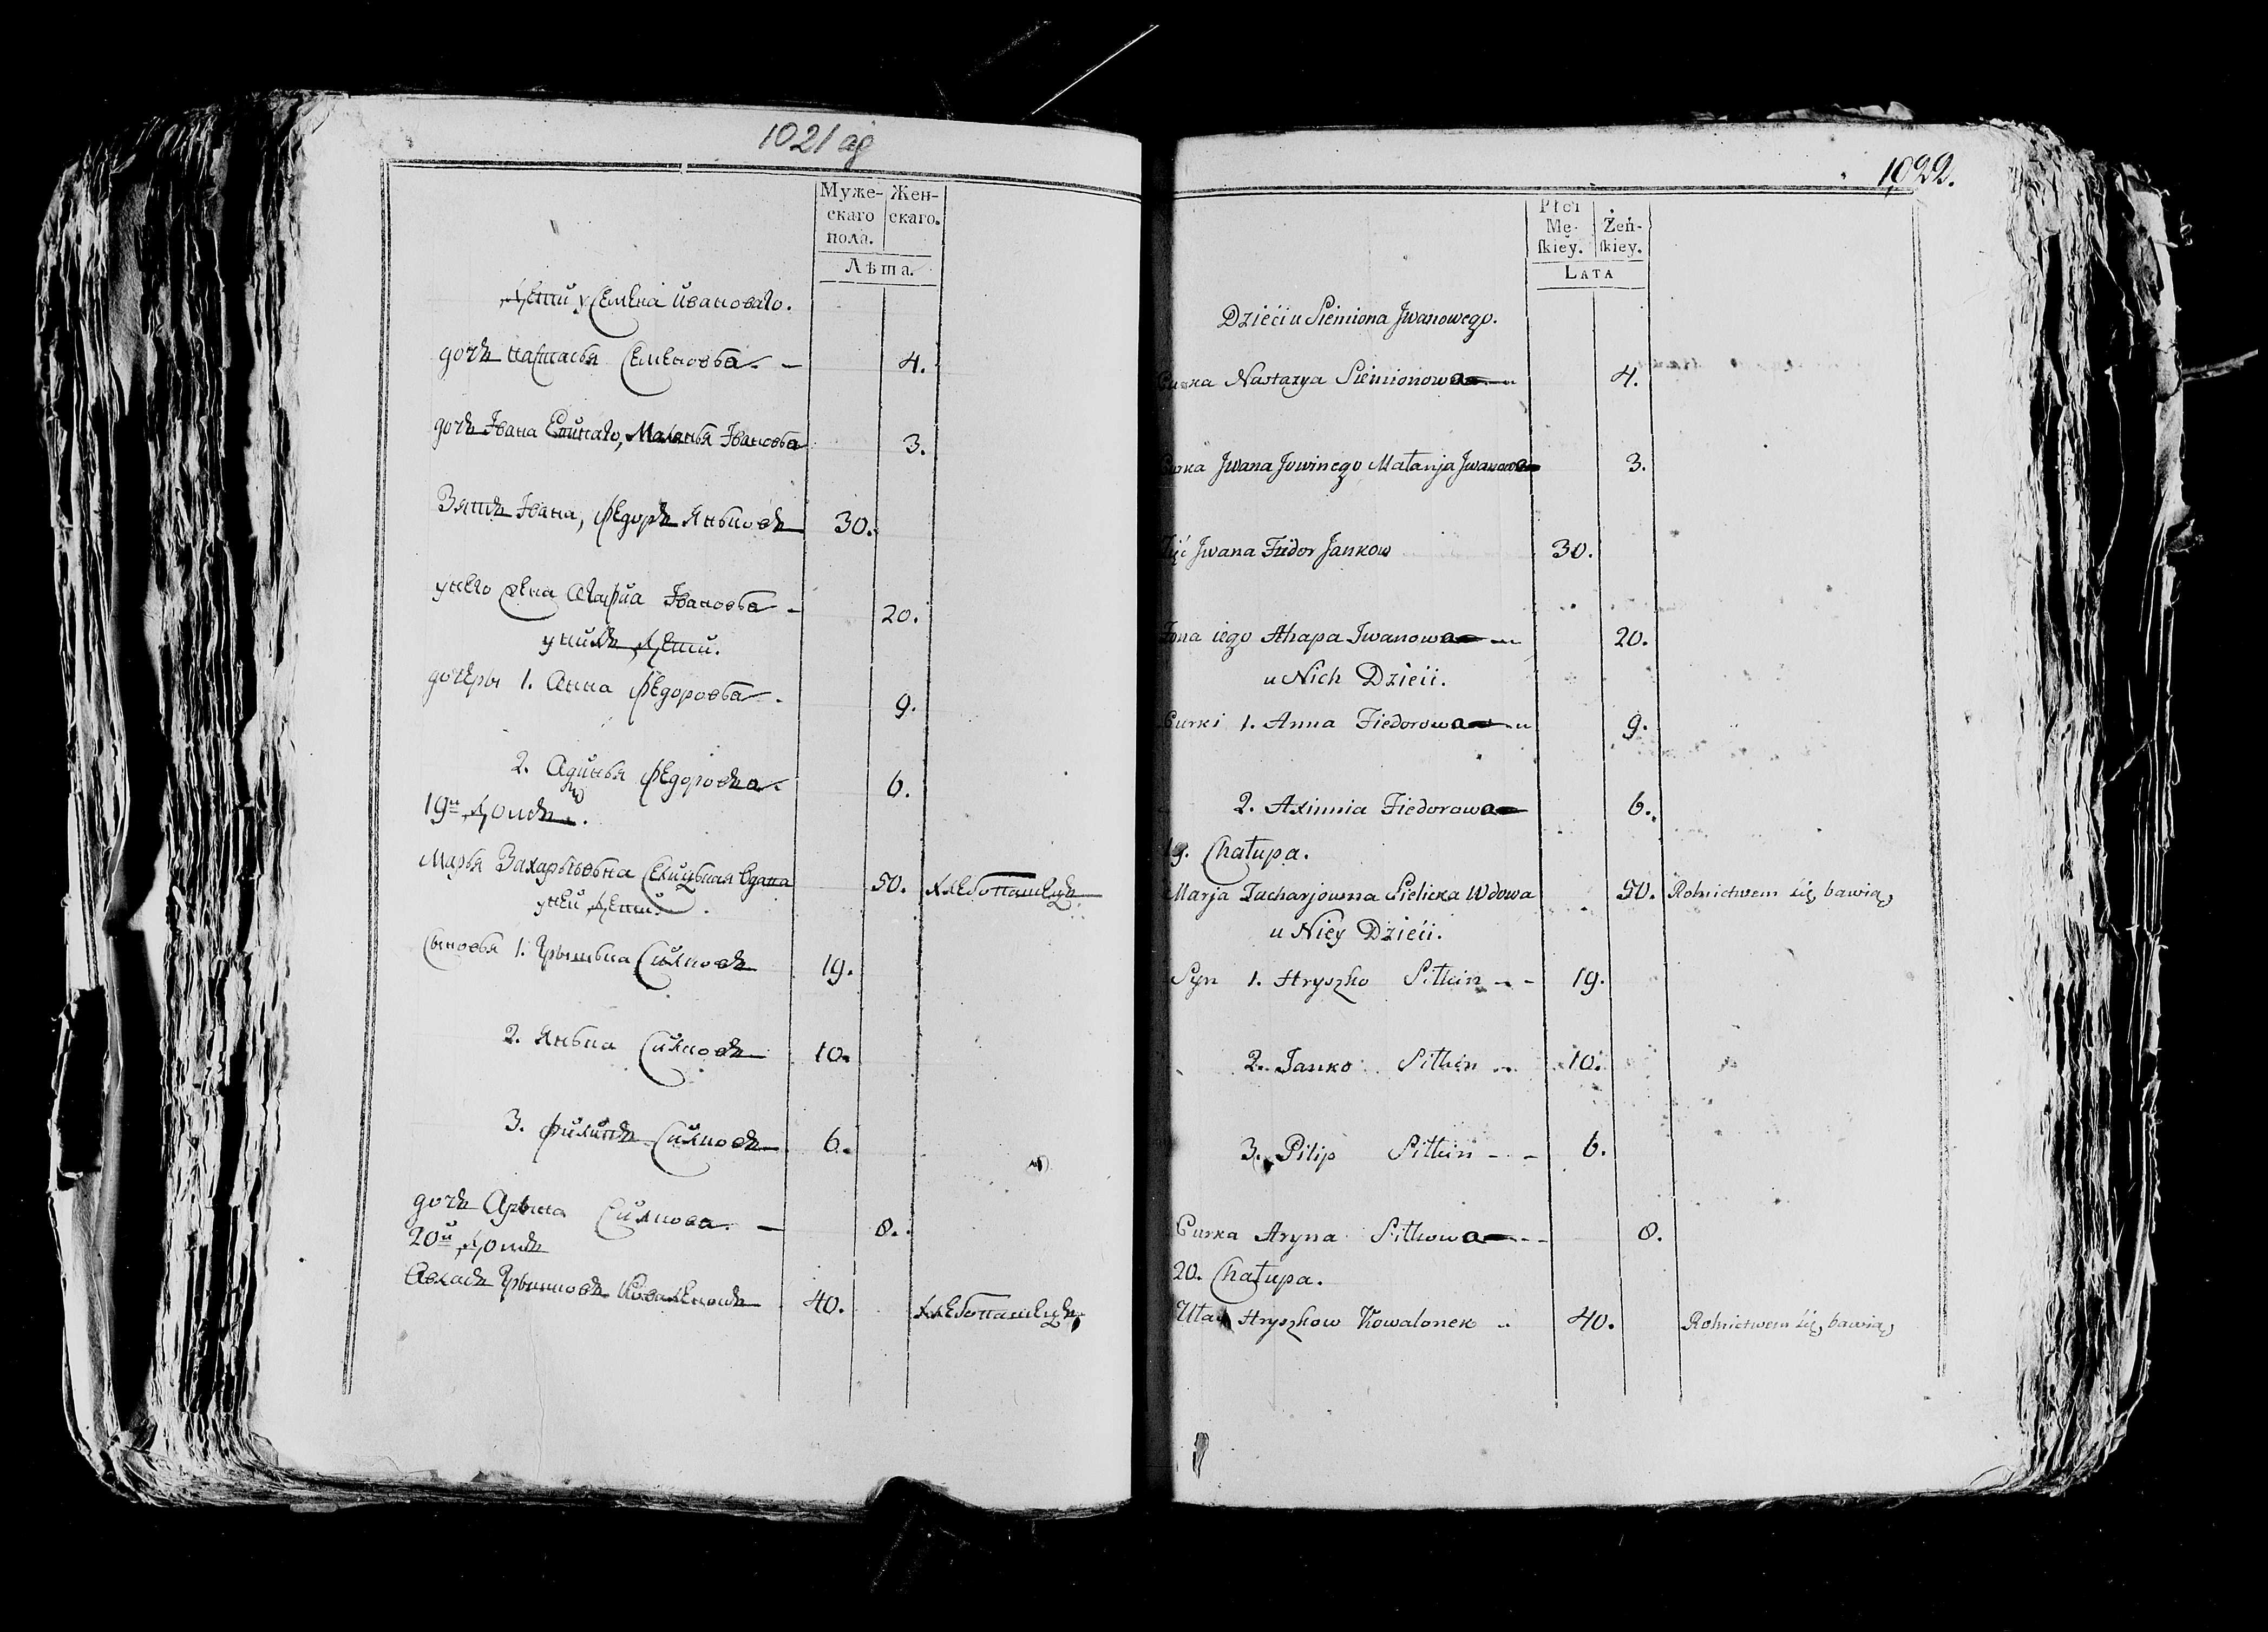 1021 об
Муже- Жен-
скаго скаго.
пола.
Лѣта.
Дети у Семена Ивановаго.
дочъ Настасья Семеновва - 4.
дочъ Івана , Маланья Івановва 3.
Зять Івана, Федоръ Яньковъ 30.
унего жена Агафиа Івановва - 20.
унихъ дети.
дочеры 1. Анна Федоровва. 9.
2. Федоровва. 6.
19й Домъ.
Марья Захарьевьна Вдава 50. Хлебопашецъ
уней дети.
Сыновья 1. Грышька Силковъ 19.
2. Янька Силковъ 10.
3. Филипъ Силковъ 6.
дочъ Арына Силкова. - 8.
20й Домъ
Авласъ Грышковъ Коваленокъ 40. Хлебопашецъ
1022.
Płci
Mę- Żeń-
skiey. skiey.
LATA
Dzieci u Siemiona Jwanowego.
Curka Nastazya Siemionowa 4.
Curka Jwana Jowinego Małanja Jwanowa 3.
Zięć Jwana Fiedor Jankow 30.
Żona iego Ahapa Jwanowa 20.
u Nich Dzieci.
Curki 1. Anna Fiedorowa 9.
2. Axinnia Fiedorowa 6.
19. Chałupa.
Marja Zacharjowna Sielicka Wdowa 50. Rolnictwem się bawią
u Niey Dzieci.
Syn 1. Hryszko Siłkin - - 19.
2. Janko Siłkin 10.
3. Pilip Siłkin - - 6.
Curka Aryna Siłkowa - - 8.
20. Chałupa.
Ułas Hryszkow Kowalonek 40. Rolnictwem się bawią